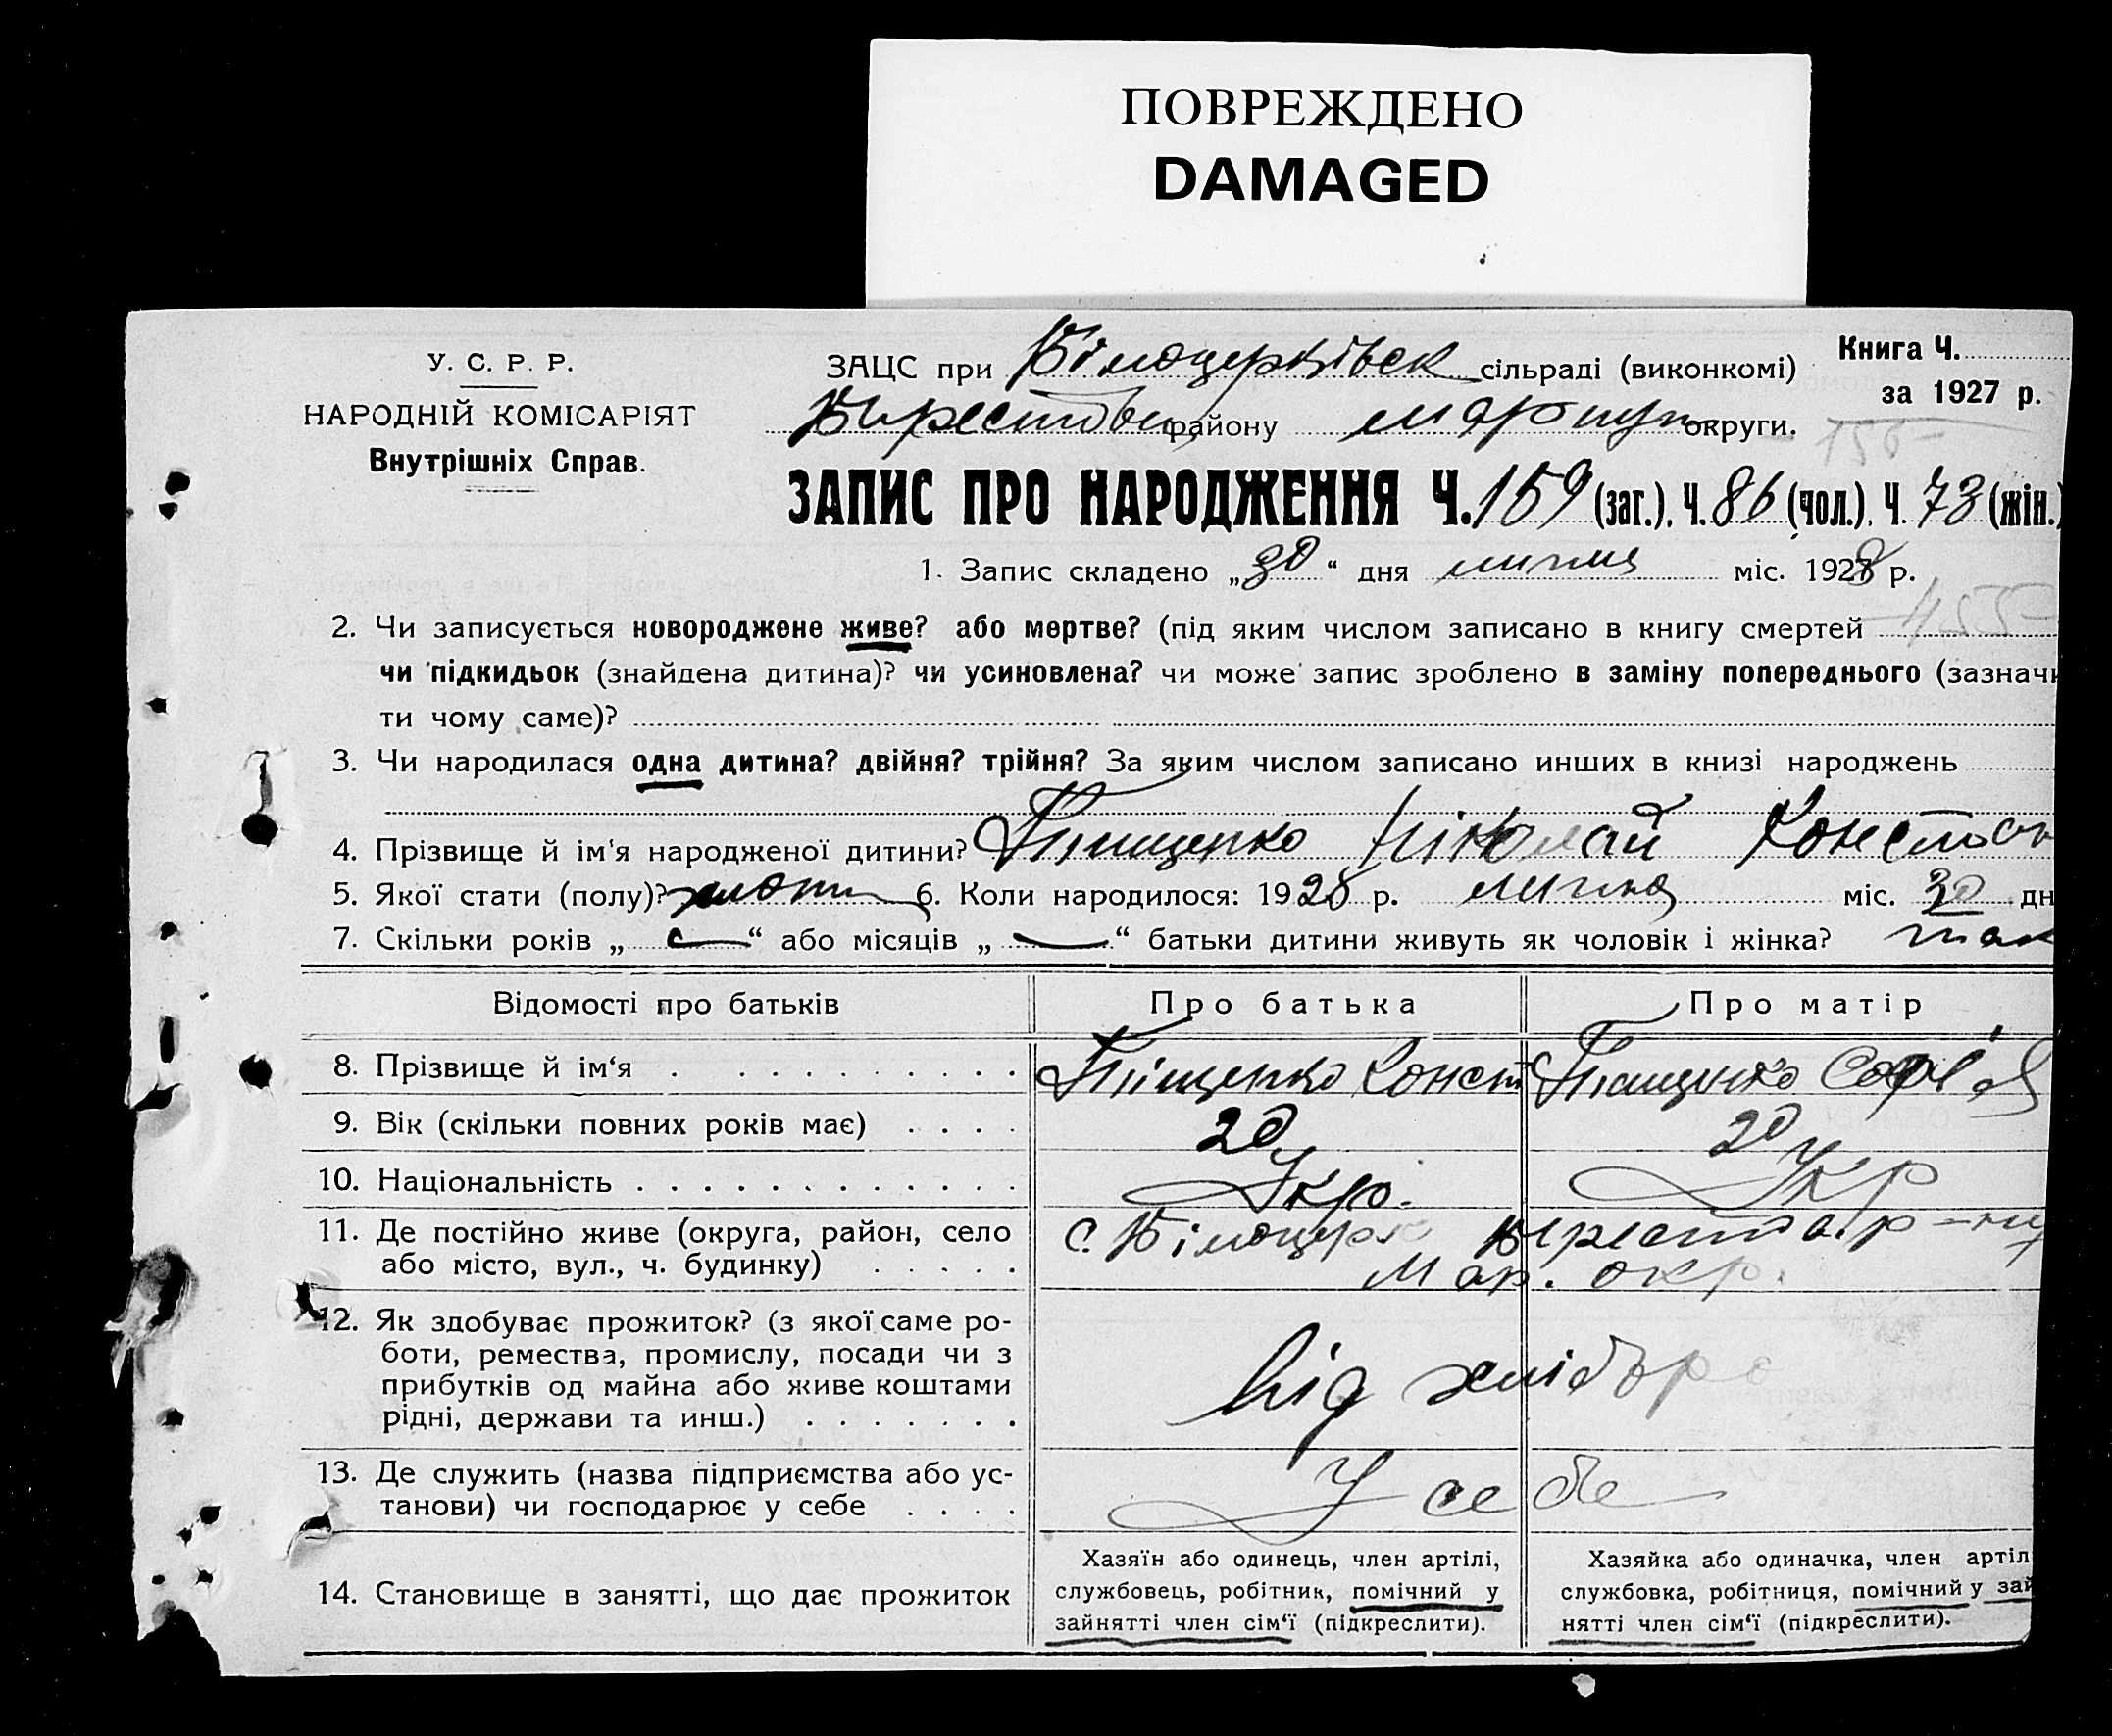 ПОВРЕЖДЕНО
DAMAGED
У. С. Р. Р.
НАРОДНІЙ КОМІСАРІЯТ
Внутрішніх Справ.
ЗАЦС при Білоцерківск сільраді (виконкомі)
району Маріуп округи.
Книга Ч.
за 1927 р.
ЗАПИС ПРО НАРОДЖЕННЯ Ч. 159 (заг.), Ч. 86 (чол.), Ч. 73 (жін.)
1. Запис складено „30“ дня липня міс. 1928 р.
2. Чи записується новороджене живе? або мертве? (під яким числом записано в книгу смертей
чи підкидьок (знайдена дитина)? чи усиновлена? чи може запис зроблено в заміну попереднього (зазначи
ти чому саме)?
3. Чи народилася одна дитина? двійня? трійня? За яким числом записано инших в книзі народжень
4. Прізвище й ім'я народженої дитини? Тищенко Ніколай Констан
5. Якої стати (полу)? 6. Коли народилося: 1928 р. липня міс. 30 дн
7. Скільки років „ — “ або місяців „ — “ батьки дитини живуть як чоловік і жінка? так
Відомості про батьків
Про батька
Про матір
8. Прізвище й ім‘я
Тіщенко Конст
Тищенко Софія
9. Вік (скільки повних років має)
20
20
10. Національність
Укр.
Укр
11. Де постійно живе (округа, район, село
або місто, вул., ч. будинку)
с. Білоцерк Берестов. р-ну
Мар. окр.
12. Як здобуває прожиток? (з якої саме ро-
боти, ремества, промислу, посади чи з
прибутків од майна або живе коштами
рідні, держави та инш.)
від хліборо
13. Де служить (назва підприємства або ус-
танови) чи господарює у себе
У себе
14. Становище в занятті, що дає прожиток
Хазяїн або одинець, член артілі,
службовець, робітник, помічний у
зайнятті член сім‘ї (підкреслити).
Хазяйка або одиначка, член артіл
службовка, робітниця, помічний у зай
нятті член сім‘ї (підкреслити).